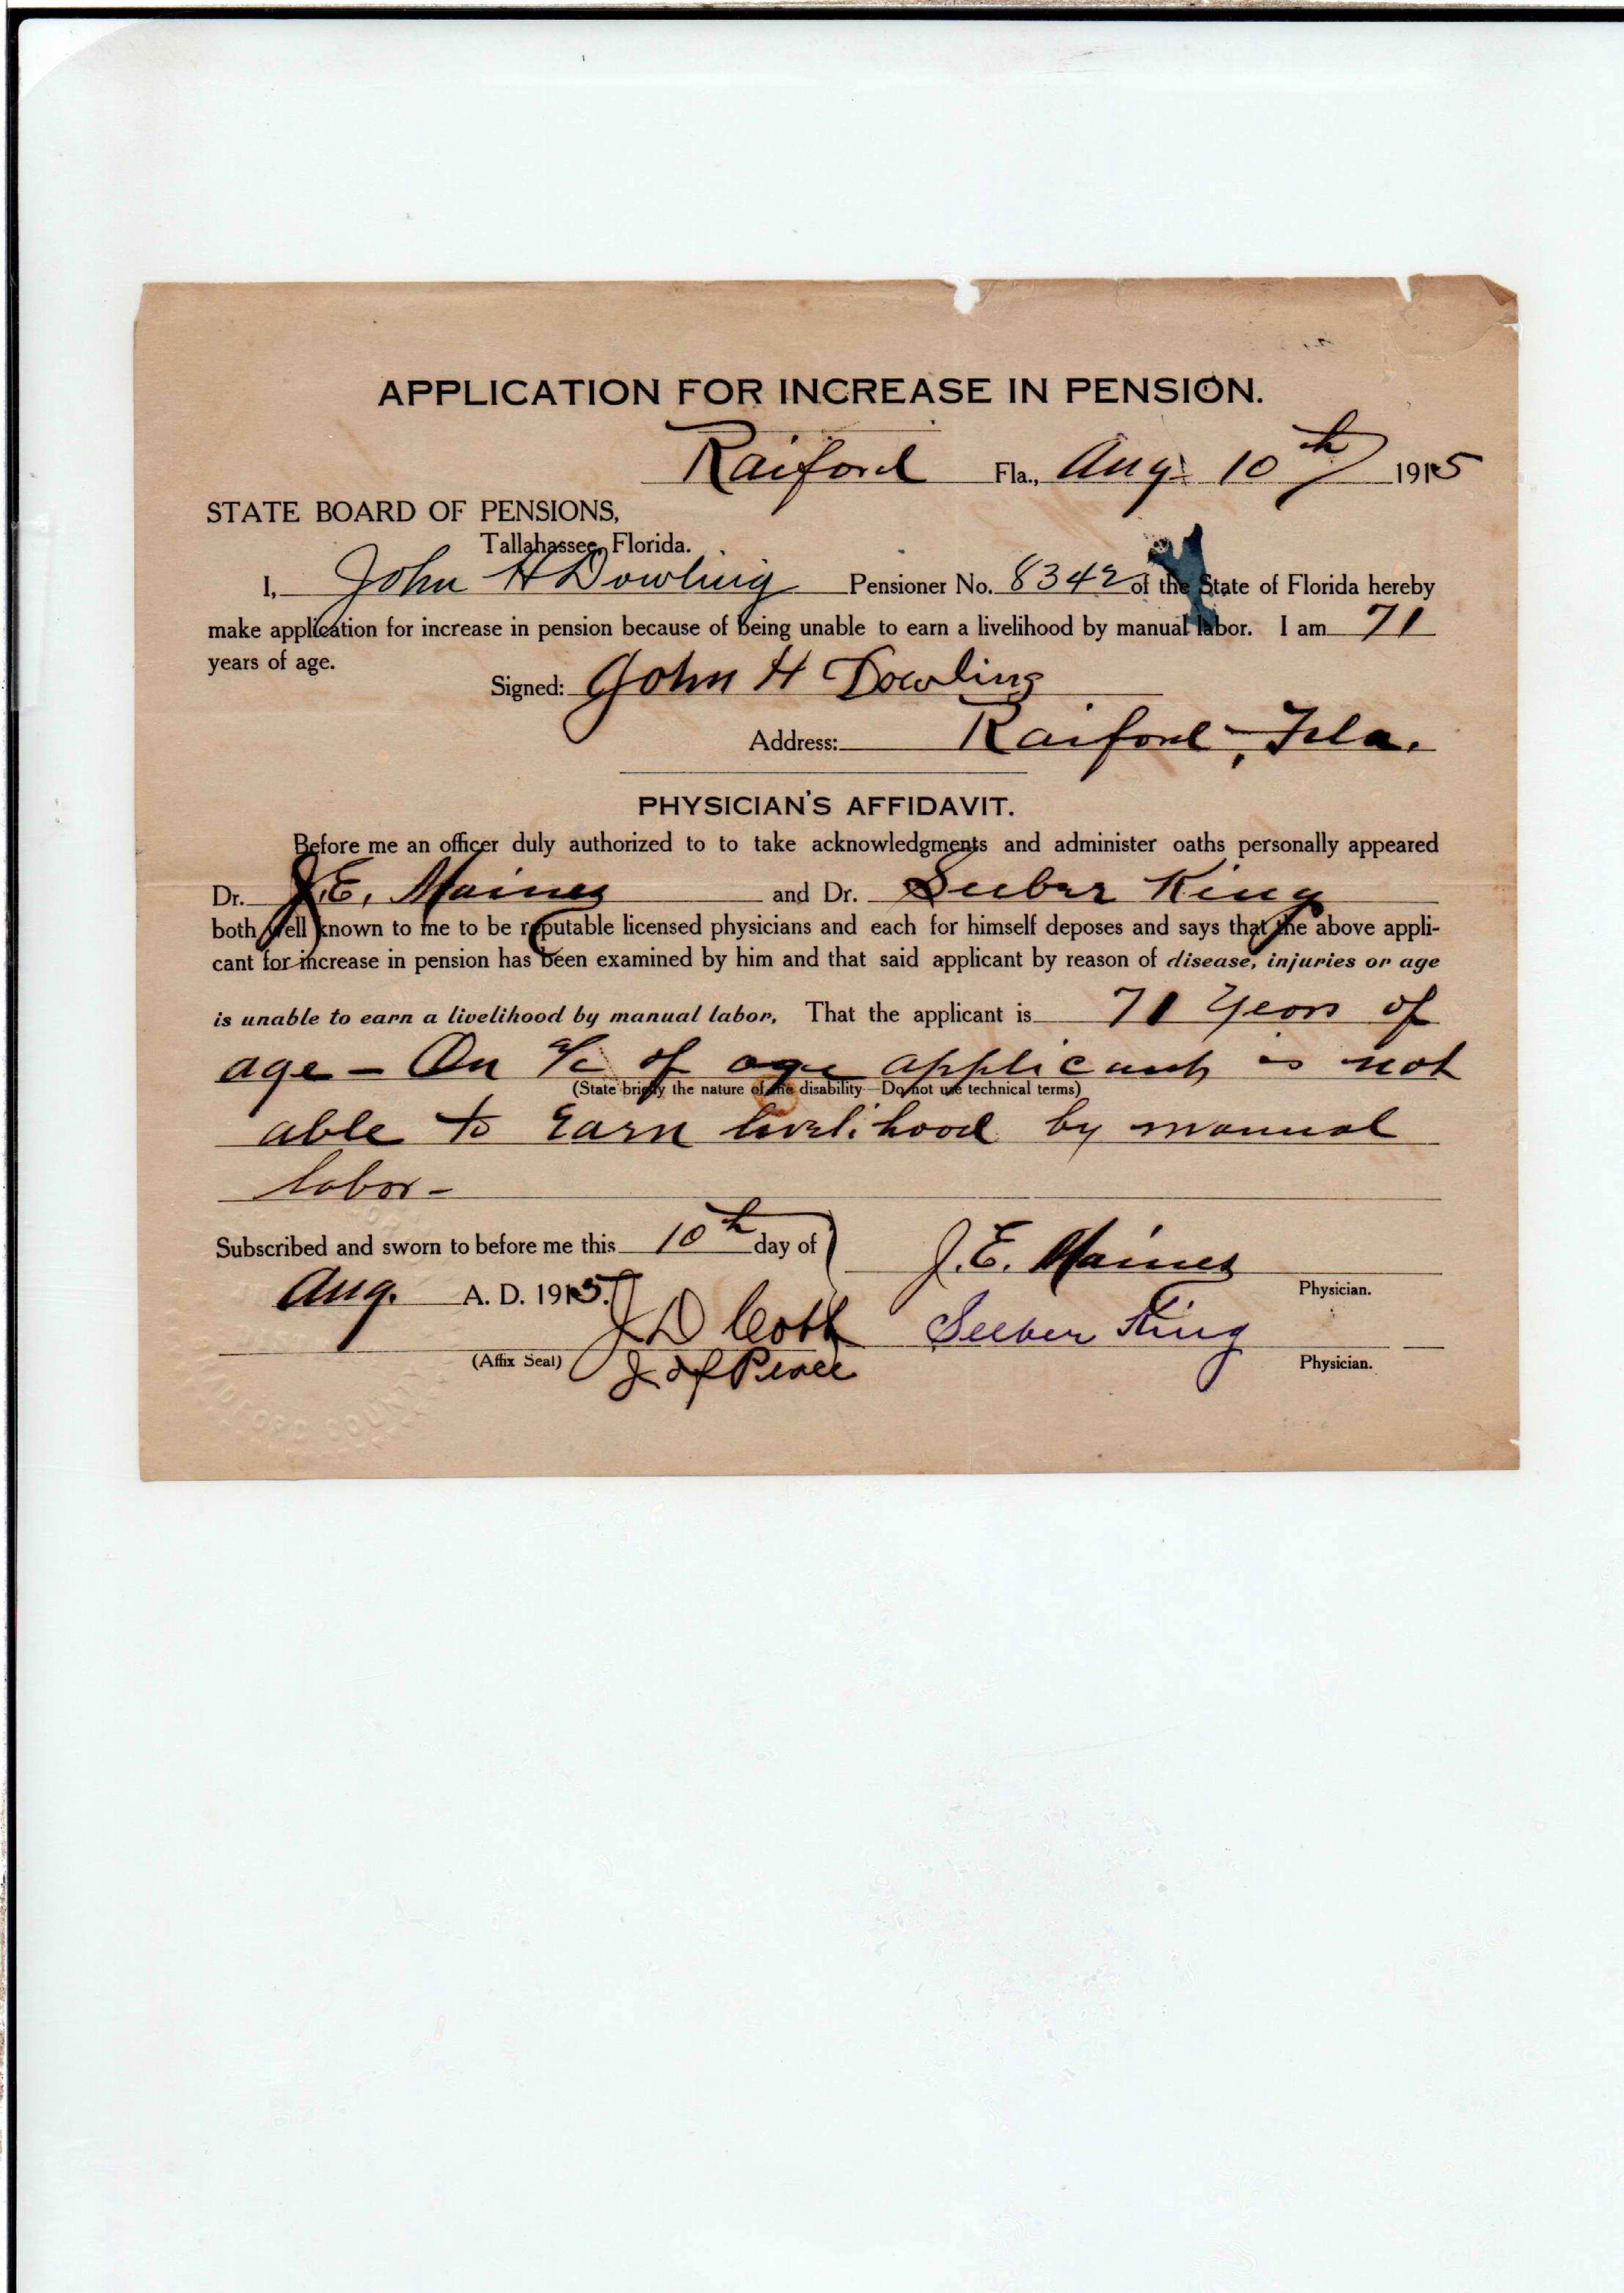 APPLICATION FOR INCREASE IN PENSION.
Raiford Fla., Aug. 10th 1915
STATE BOARD OF PENSIONS,
Tallahassee, Florida.
I, John H Dowling Pensioner No. 8342 of the State of Florida hereby
make application for increase in pension because of being unable to earn a livelihood by manual labor. I am 71
years of age.
Signed: John H Dowling
Address: Raiford, Fla.
PHYSICIAN'S AFFIDAVIT.
Before me an officer duly authorized to to take acknowledgments and administer oaths personally appeared
Dr. J.E. Maines and Dr. Seeber King
both well known to me to be reputable licensed physicians and each for himself deposes and says that the above appli-
cant for increase in pension has been examined by him and that said applicant by reason of disease, injuries or age
is unable to earn a livelihood by manual labor, That the applicant is 71 years of
age - On a/c of age applicant is not
(State briefly the nature of the disability—Do not use technical terms)
able to Earn livelihood by manual
labor -
Subscribed and sworn to before me this 10th day of J.E. Maines
Aug. A. D. 1915. Physician.
J D Cobb Seeber King
(Affix Seal) J of Peace Physician.
COUNTY